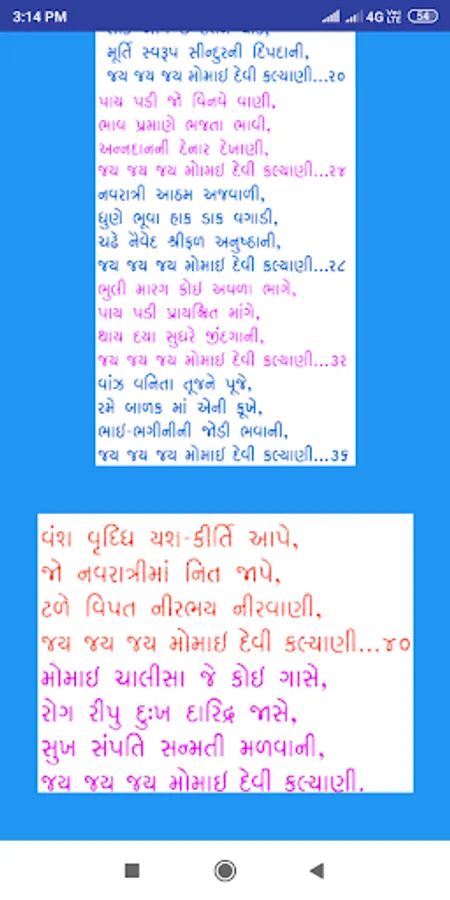 3:14 PM
4G
54
મૂર્તિ સ્વરૂપ સીન્દુરની દિપદાની,
જય જય જય મોમાઈ દેવી કલ્યાણી...૨૦
પાય પડી જો વિનવે વાણી,
ભાવ પ્રમાણે ભજતા ભાવી,
અન્નદાનની દેનાર દેખાણી,
જય જય જય મોામઈ દેવી કલ્યાણી...૨૪
નવરાત્રી આઠમ અજવાળી,
ધુણે ભૂવા હાક ડાક વગાડી,
ચઢે નૈવેદ શ્રીફળ અનુષ્ઠાની,
જય જય જય મોમાઈ દેવી કલ્યાણી...૨૮
ભુલી મારગ કોઈ અવળા ભાગે,
પાય પડી પ્રાયશ્ચિત માંગે,
થાય દયા સુધરે જીંદગાની,
જય જય જય મોમાઈ દેવી કલ્યાણી...૩૨
વાંઝ વનિતા તૂજને પૂજે,
રમે બાળક માં એની કૂખે,
ભાઈ-ભગીનીની જોડી ભવાની,
જય જય જય મોમાઈ દેવી કલ્યાણી...૩૬
વંશ વૃધ્ધિ યશ-કીર્તિ આપે,
જો નવરાત્રીમાં નિત જાપે,
ટળે વિપત નીરભય નીરવાણી,
જય જય જય મોમાઈ દેવી કલ્યાણી...૪૦
મોમાઈ ચાલીસા જે કોઈ ગાસે,
રોગ રીપુ દુઃખ દારિદ્ર જાસે,
સુખ સંપતિ સન્મતી મળવાની,
જય જય જય મોમાઈ દેવી કલ્યાણી.